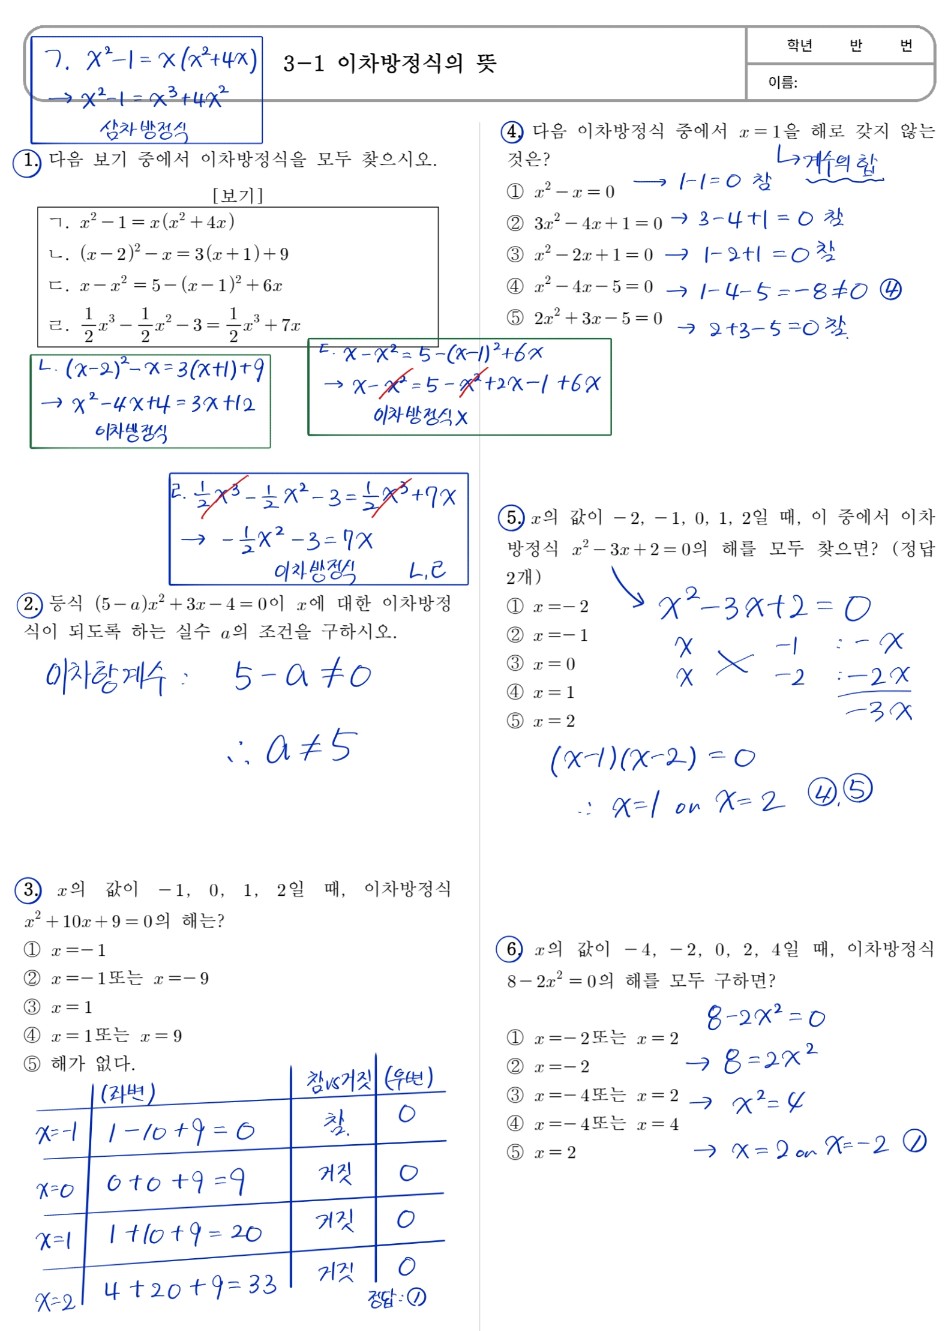 3-1 이차방정식의 뜻
학년 반 번
이름:
ㄱ. x²-1=x(x²+4x)
→ x²-1=x³+4x²
삼차방정식
1. 다음 보기 중에서 이차방정식을 모두 찾으시오.
[보기]
ㄱ. x²-1=x(x²+4x)
ㄴ. (x-2)²-x=3(x+1)+9
ㄷ. x-x²=5-(x-1)²+6x
ㄹ. 1/2x³-1/2x²-3=1/2x³+7x
ㄴ. (x-2)²-x=3(x+1)+9
→ x²-4x+4=3x+12
이차방정식
ㄷ. x-x²=5-(x-1)²+6x
→ x-x²=5-x²+2x-1+6x
이차방정식 X
ㄹ. 1/2x³-1/2x²-3=1/2x³+7x
→ -1/2x²-3=7x
이차방정식 ㄴ,ㄹ
2. 등식 (5-a)x²+3x-4=0이 x에 대한 이차방정
식이 되도록 하는 실수 a의 조건을 구하시오.
이차항계수 : 5-a≠0
∴ a≠5
3. x의 값이 -1, 0, 1, 2일 때, 이차방정식
x²+10x+9=0의 해는?
① x=-1
② x=-1또는 x=-9
③ x=1
④ x=1또는 x=9
⑤ 해가 없다.
(좌변) 참vs거짓 (우변)
x=-1 1-10+9=0 참. 0
x=0 0+0+9=9 거짓 0
x=1 1+10+9=20 거짓 0
x=2 4+20+9=33 거짓 0
정답:①
4. 다음 이차방정식 중에서 x=1을 해로 갖지 않는
것은?
↳계수의 합
① x²-x=0 → 1-1=0 참
② 3x²-4x+1=0 → 3-4+1=0 참
③ x²-2x+1=0 → 1-2+1=0 참
④ x²-4x-5=0 → 1-4-5=-8≠0 ④
⑤ 2x²+3x-5=0 → 2+3-5=0 참.
5. x의 값이 -2, -1, 0, 1, 2일 때, 이 중에서 이차
방정식 x²-3x+2=0의 해를 모두 찾으면? (정답
2개)
① x=-2
② x=-1
③ x=0
④ x=1
⑤ x=2
x²-3x+2=0
x -1 :-x
x -2 :-2x
-3x
(x-1)(x-2)=0
∴ x=1 or x=2 ④,⑤
6. x의 값이 -4, -2, 0, 2, 4일 때, 이차방정식
8-2x²=0의 해를 모두 구하면?
① x=-2또는 x=2
② x=-2
③ x=-4또는 x=2
④ x=-4또는 x=4
⑤ x=2
8-2x²=0
→ 8=2x²
→ x²=4
→ x=2 or x=-2 ①